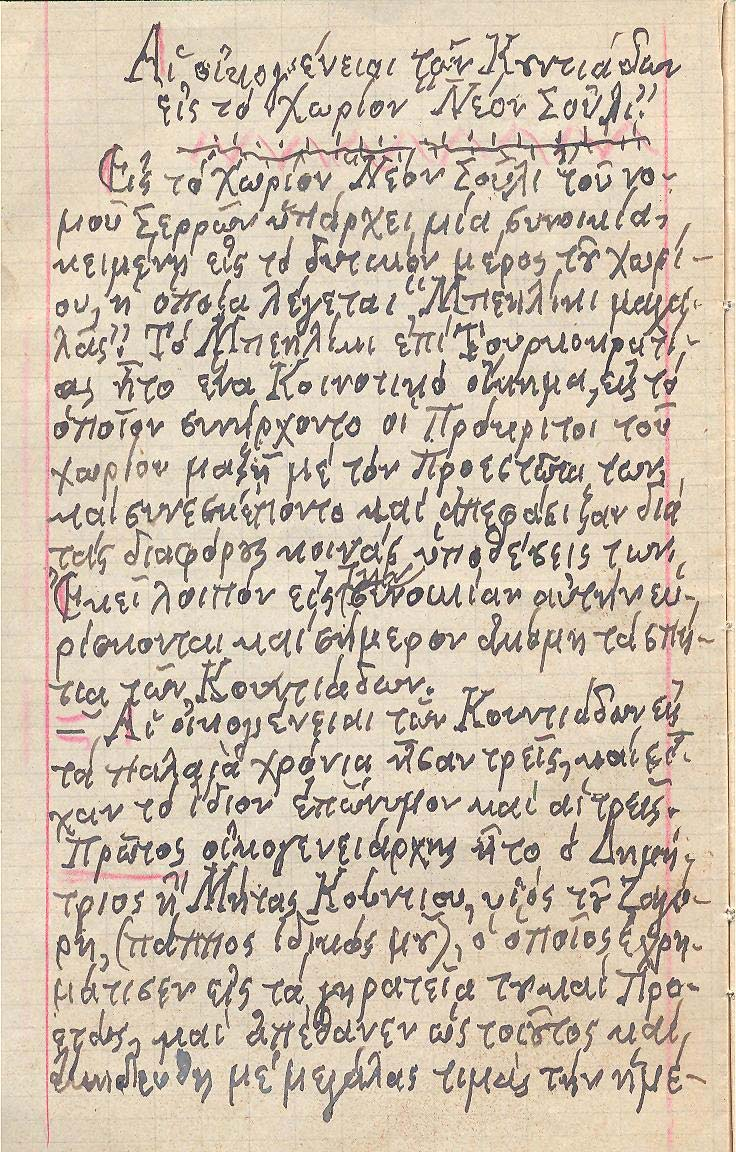 Αἱ οἰκογένειαι τῶν Κȣντιάδων
εἰς τὸ χωρίον "Νέον Σοῦλι"
Εἰς τὸ χωρίον Νέον Σοῦλι τοῦ νο-
μοῦ Σερρῶν ὑπάρχει μία συνοικία,
κειμένη εἰς τὸ δυτικὸν μέρος τȣ͂ χωρί-
ου, ἡ ὁποία λέγεται "Μπεηλίκι μαχα-
λάς". Τὸ Μπεηλίκι ἐπὶ Τουρκοκρατί-
ας ἦτο ἕνα Κοινοτικὸ οἴκημα, εἰς τὸ
ὁποῖον συνήρχοντο οἱ Πρόκριτοι τοῦ
χωρίου μαζῆ μὲ τὸν Προεστῶτα των,
καὶ συνεσκέπτοντο καὶ ἀπεφάσιζαν διὰ
τὰς διαφόρȣς κοινὰς ὑποθέσεις των.
Ἐκεῖ λοιπὸν εἰς τὴν συνοικίαν αὐτὴν εὑ-
ρίσκονται καὶ σήμερον ἀκόμη τὰ σπή-
τια τῶν Κουντιάδων.
= Αἱ οἰκογένειαι τῶν Κουντιάδων εἰς
τὰ παλαιὰ χρόνια ἦσαν τρεῖς, καὶ εἶ-
χαν τὸ ἴδιον ἐπώνυμον καὶ αἱ τρεῖς.
Πρῶτος οἰκογενειάρχης ἦτο ὁ Δημή-
τριος ἢ Μήτας Κούντιου, υἱὸς τȣ͂ Ζαγο-
ρῆ, (πάππος ἰδικός μȣ), ὁ ὁποῖος ἐχρη-
μάτισεν εἰς τὰ γηρατεῖα τȣ καὶ Προ-
εστώς, καὶ ἀπέθανεν ὡς τοιȣ͂τος καὶ
ἐκηδεύθη μὲ μεγάλας τιμὰς τὴν ἡμέ-